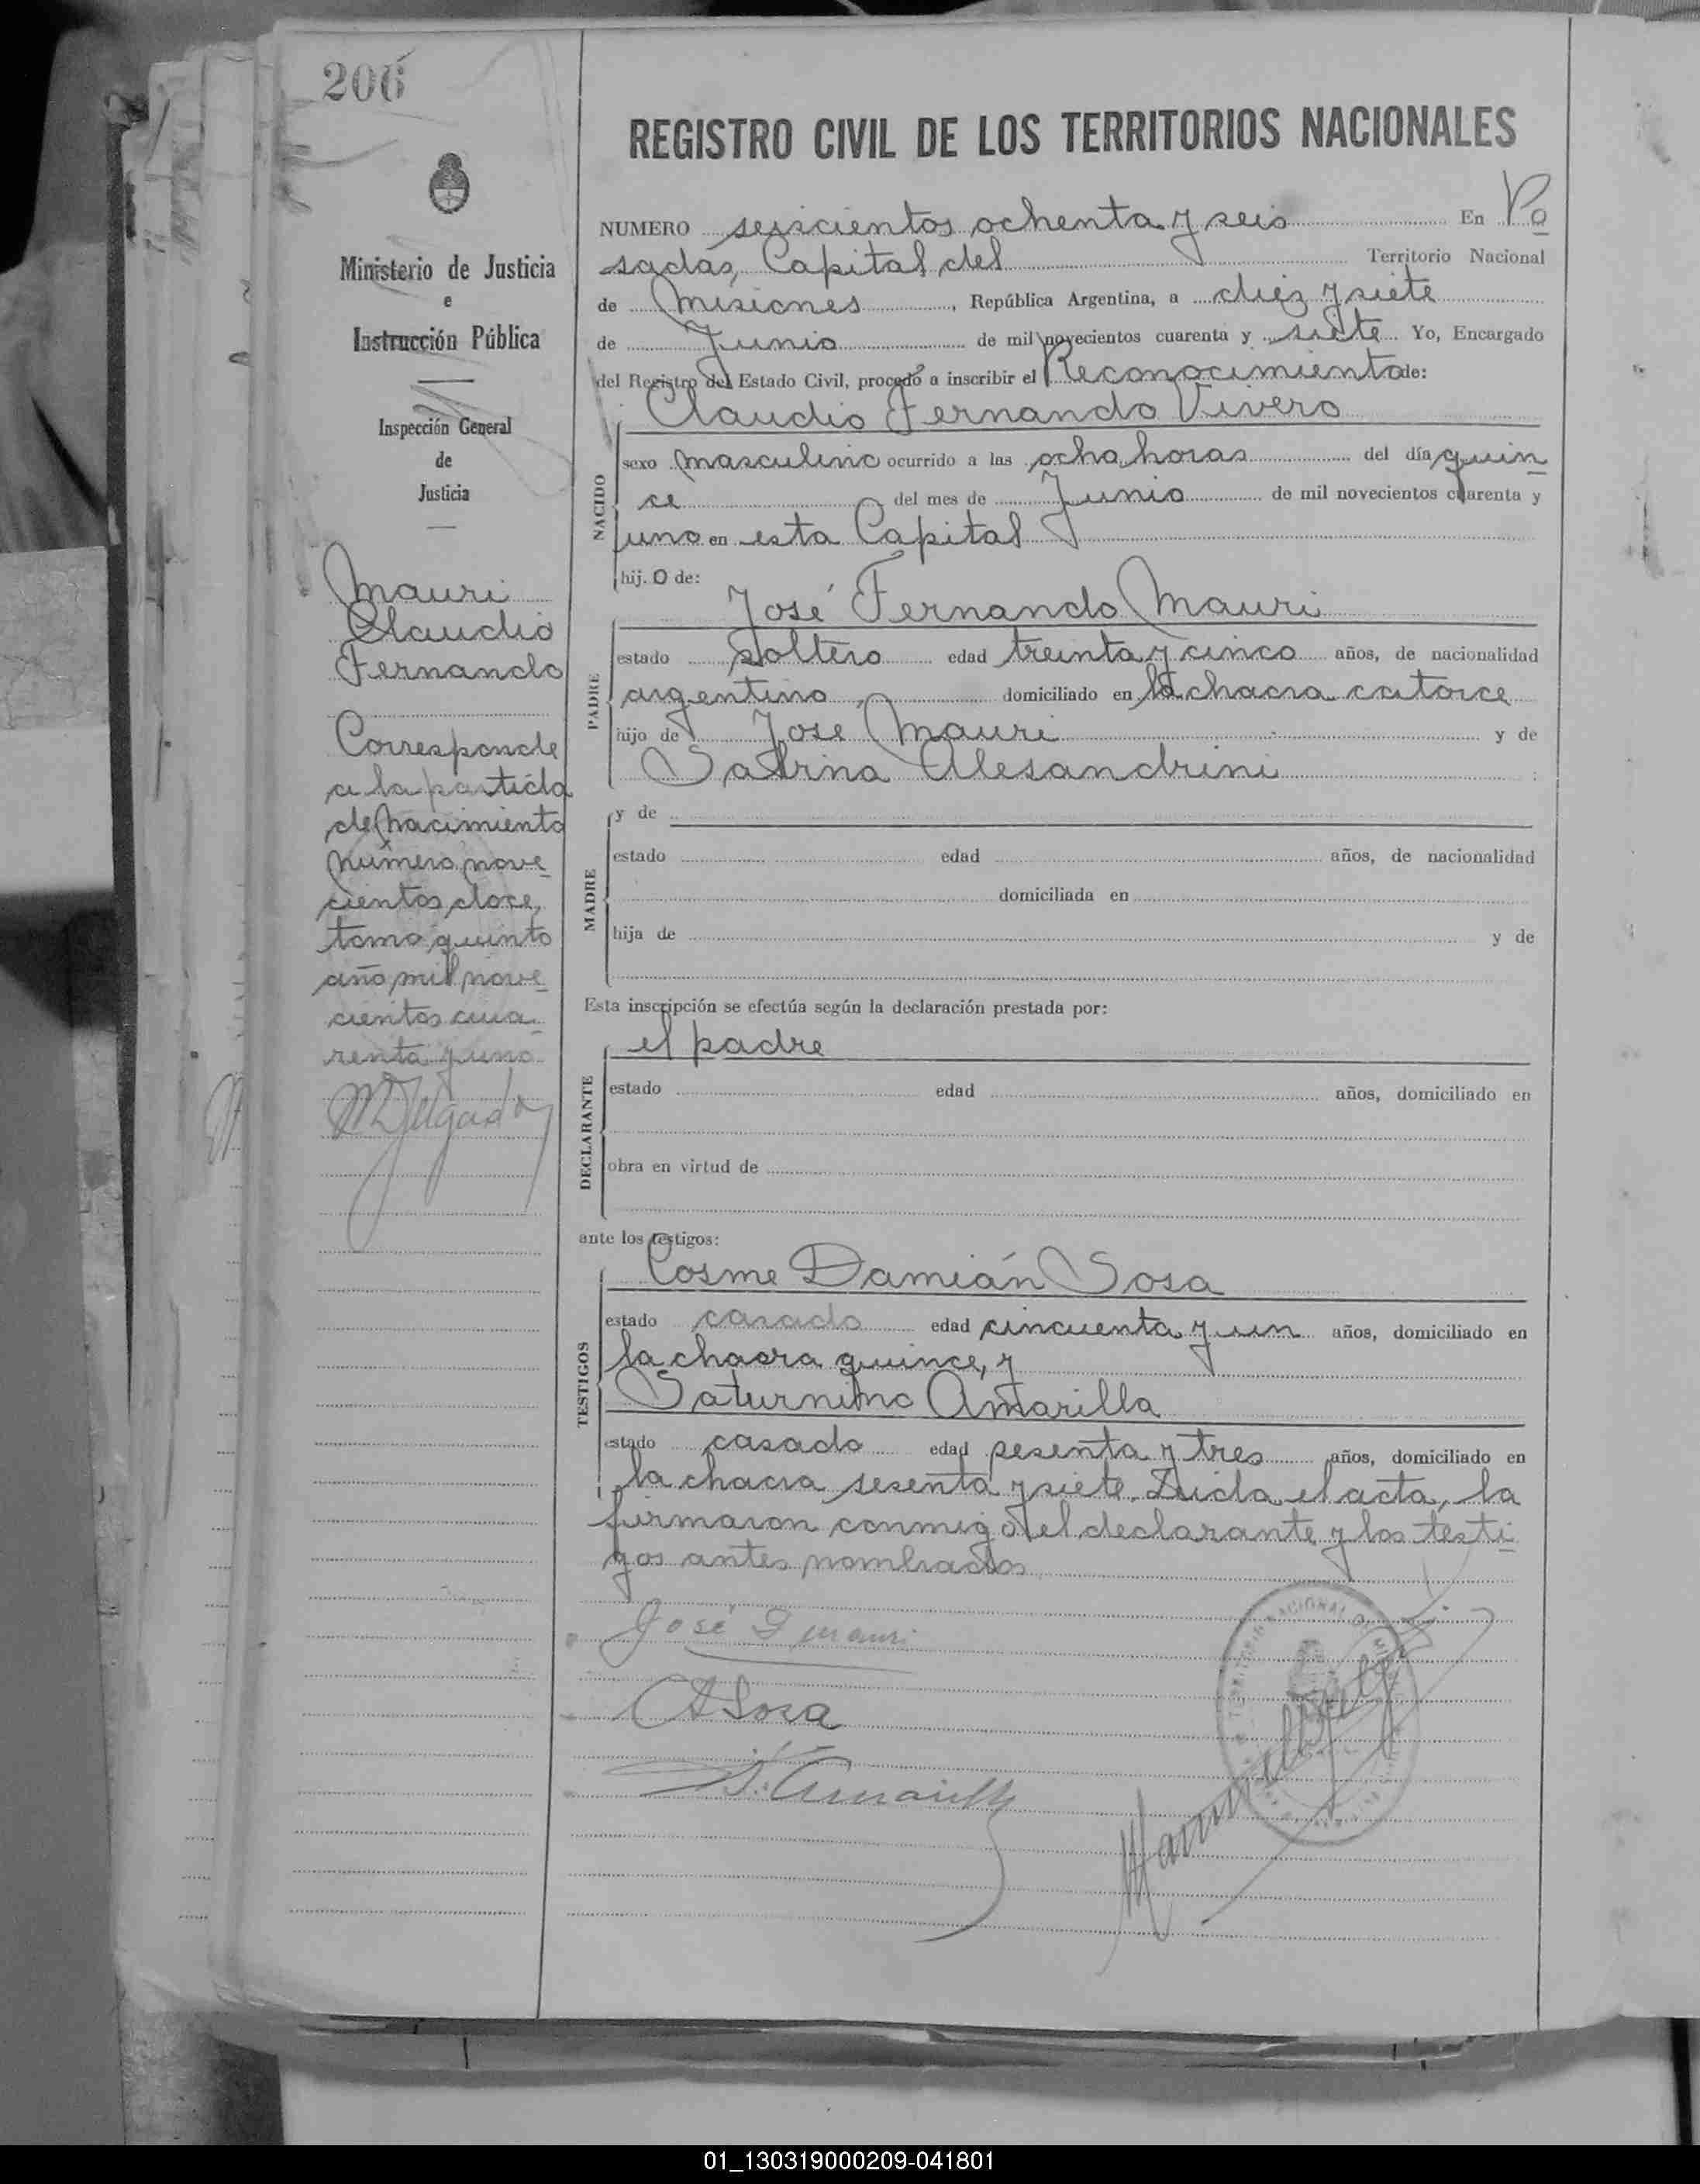 206
Ministerio de Justicia
e
Instrucción Pública
Inspección General
de
Justicia
Mauri
Claudio
Fernando
Corresponde
a la partida
de nacimiento
número nove-
cientos doce,
tomo quinto
año mil nove-
cientos cua-
renta y uno
MDelgado
REGISTRO CIVIL DE LOS TERRITORIOS NACIONALES
NUMERO seiscientos ochenta y seis En Po
sadas, Capital del Territorio Nacional
de Misiones, República Argentina, a diez y siete
de Junio de mil novecientos cuarenta y siete Yo, Encargado
del Registro del Estado Civil, procedo a inscribir el Reconocimiento de:
Claudio Fernando Vivero
NACIDO
sexo masculino ocurrido a las ocho horas del día quin
ce del mes de Junio de mil novecientos cuarenta y
uno en esta Capital
hij. o de:
José Fernando Mauri
PADRE
estado soltero edad treinta y cinco años, de nacionalidad
argentino, domiciliado en la chacra catorce
hijo de José Mauri y de
Sabrina Alesandrini
MADRE
y de
estado edad años, de nacionalidad
domiciliada en
hija de y de
Esta inscripción se efectúa según la declaración prestada por:
el padre
DECLARANTE
estado edad años, domiciliado en
obra en virtud de
ante los testigos:
Cosme Damián Sosa
TESTIGOS
estado casado edad cincuenta y un años, domiciliado en
la chacra quince, y
Saturnino Amarilla
estado casado edad sesenta y tres años, domiciliado en
la chacra sesenta y siete. Leida el acta, la
firmaron conmigo el declarante y los testi-
gos antes nombrados
José F Mauri
CDSosa
S. Amarilla
01_130319000209-041801